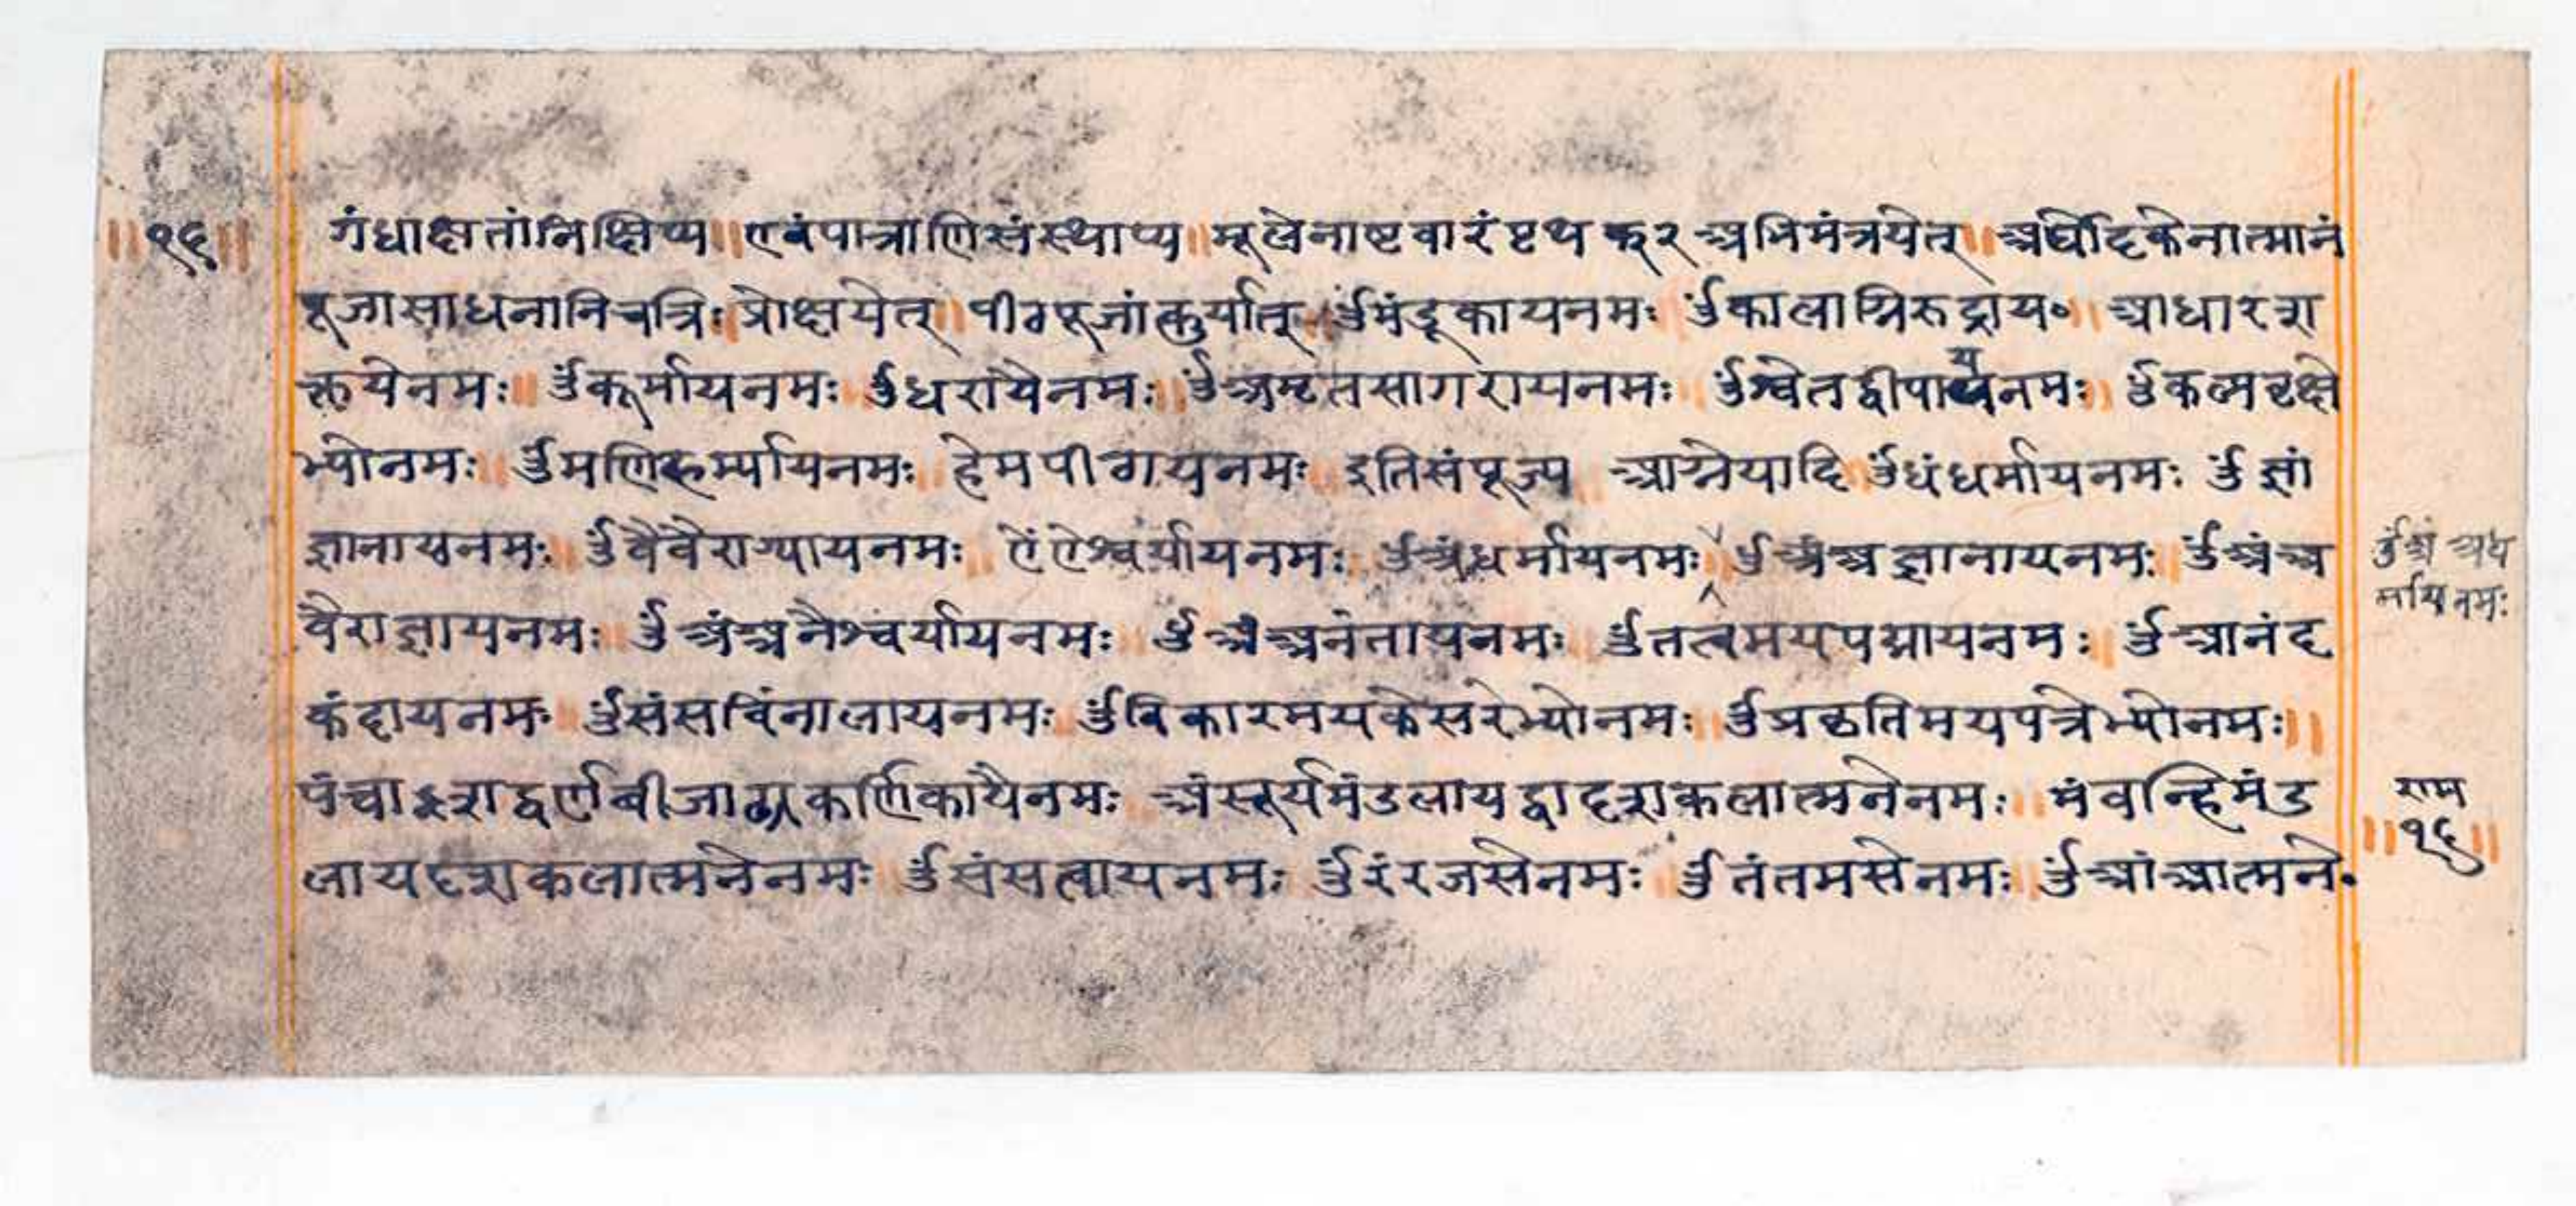 ॥१६॥ गंधाक्षतांनिक्षिप्य ॥ एवंपात्राणिसंस्थाप्य ॥ मूलेनाष्टवारंपृथक् २ अभिमंत्रयेत् ॥ अर्घोदकेनात्मानं
पूजासाधनानिचत्रिः प्रोक्षयेत् ॥ पीठपूजांकुर्यात् ॥ ॐमंडूकायनमः ॐकालाग्निरुद्राय॰ ॥ आधारश
क्तयेनमः ॥ ॐकूर्मायनमः ॐधरायैनमः ॥ ॐअमृतसागरायनमः ॐश्वेतद्वीपायनमः ॥ ॐकल्पवृक्षे
भ्योनमः ॥ ॐमणिहर्म्यायनमः ॥ हेमपीठायनमः इतिसंपूज्य आग्नेयादि ॐधंधर्मायनमः ॐज्ञां
ज्ञानायनमः ॥ ॐवैंवैराग्यायनमः ॥ ऐंऐश्वर्यायनमः ॐअंधर्मायनमः ॥ ॐअंअज्ञानायनमः ॥ ॐअंअ
ॐअं अध
र्मायनमः
वैराज्ञायनमः ॥ ॐअंअनैश्वर्यायनमः ॥ ॐअंअनंतायनमः ॥ ॐतत्वमयपद्मायनमः ॥ ॐआनंद
कंदायनमः ॥ ॐसंसविंनालायनमः ॥ ॐविकारमयकेसरेभ्योनमः ॥ ॐप्रकृतिमयपत्रेभ्योनमः ॥
पंचाशद्वर्णबीजाढ्यकर्णिकायैनमः अंसूर्यमंडलायद्वादशकलात्मनेनमः ॥ मंवन्हिमंड
राम
॥१६॥
लायदशकलात्मनेनमः ॐसंसत्वायनमः ॥ ॐरंरजसेनमः ॥ ॐतंतमसेनमः ॥ ॐआंआत्मने॰